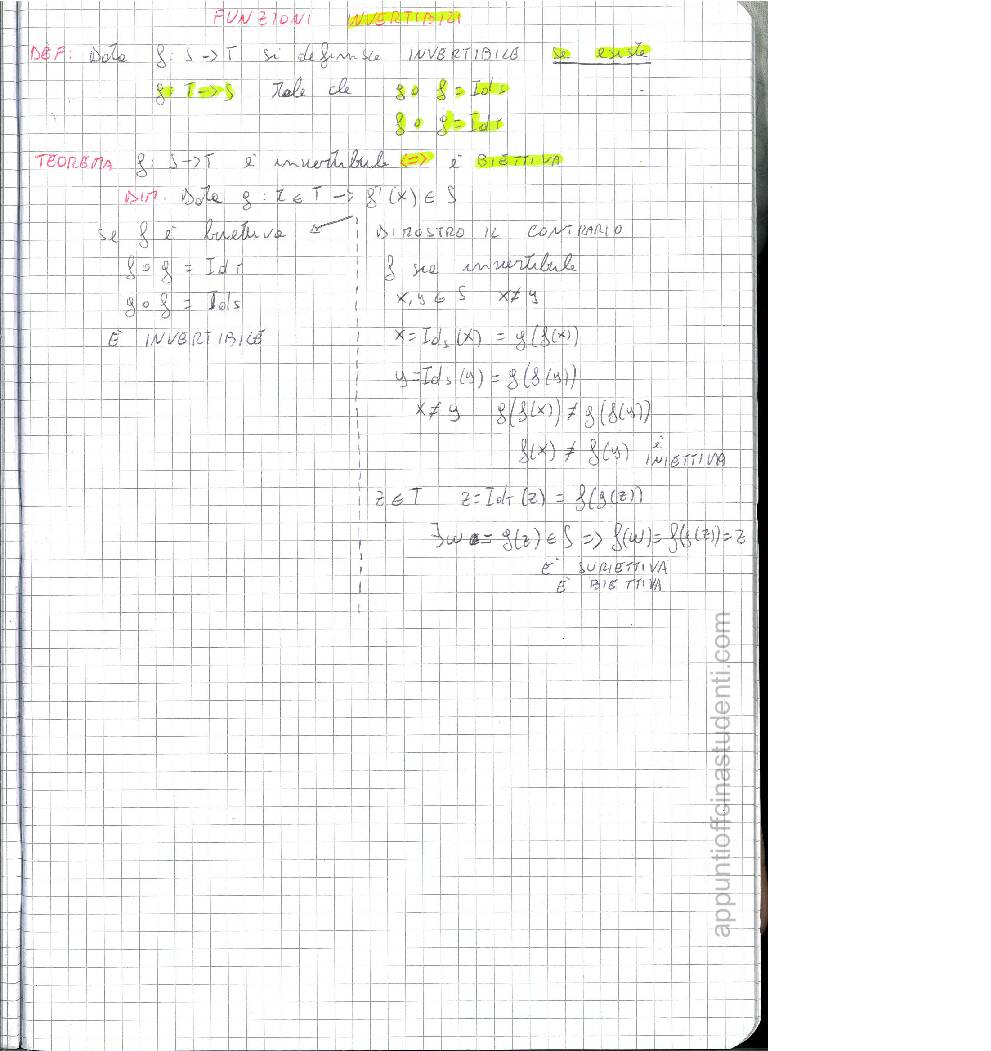 FUNZIONI INVERTIBILI
DEF: Data f: S → T si definisce INVERTIBILE se esiste
g: T → S tale che g ∘ f = Id s
f ∘ g = Id T
TEOREMA f: S → T è invertibile <=> è BIETTIVA
DIM. Data g: z ∈ T → f⁻¹(x) ∈ S
se f è biettiva
f ∘ g = Id T
g ∘ f = Id s
È INVERTIBILE
DIMOSTRO IL CONTRARIO
f sia invertibile
x, y ∈ S x ≠ y
x = Id s (x) = g(f(x))
y = Id s (y) = g(f(y))
x ≠ y g(f(x)) ≠ g(f(y))
f(x) ≠ f(y) è INIETTIVA
z ∈ T z = Id T (z) = f(g(z))
∃ w = g(z) ∈ S => f(w) = f(g(z)) = z
È SURIETTIVA
È BIETTIVA
appuntioffcinastudenti.com